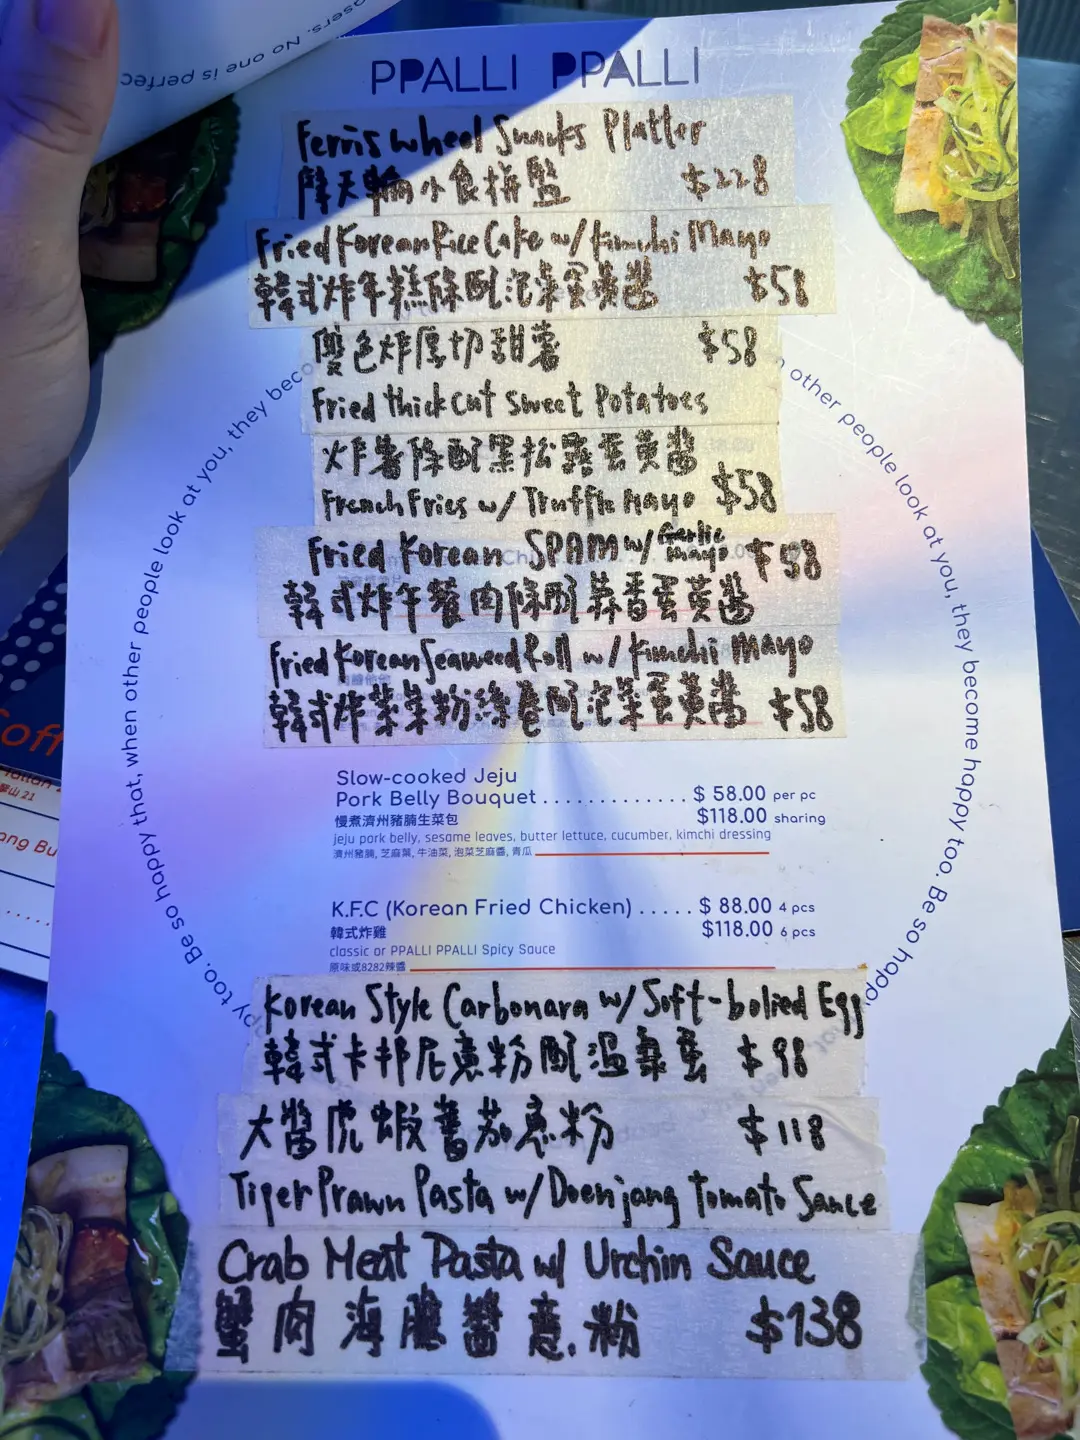 osers. No one is perfec
PPALLI PPALLI
Ferris Wheel Snacks Platter
摩天輪小食拼盤 $228
Fried Korean Rice Cake w/ Kimchi Mayo
韓式炸年糕條配泡菜蛋黃醬 $58
雙色炸厚切甜薯 $58
Fried thick cut Sweet Potatoes
炸薯條配黑松露蛋黃醬
French Fries w/ Truffle Mayo $58
Fried Korean SPAM w/ Garlic Mayo $58
韓式炸午餐肉條配蒜香蛋黃醬
Fried Korean Seaweed Roll w/ Kimchi Mayo
韓式炸紫菜粉絲卷配泡菜蛋黃醬 $58
Slow-cooked Jeju
Pork Belly Bouquet . . . . . . . . . . . . . $ 58.00 per pc
慢煮濟州豬腩生菜包 $118.00 sharing
jeju pork belly, sesame leaves, butter lettuce, cucumber, kimchi dressing
濟州豬腩, 芝麻葉, 牛油菜, 泡菜芝麻醬, 青瓜
K.F.C (Korean Fried Chicken) . . . . . $ 88.00 4 pcs
韓式炸雞 $118.00 6 pcs
classic or PPALLI PPALLI Spicy Sauce
原味或8282辣醬
Korean Style Carbonara w/ Soft-bolied Egg
韓式卡邦尼意粉配溫泉蛋 $98
大醬虎蝦蕃茄意粉 $118
Tiger Prawn Pasta w/ Doenjang Tomato Sauce
Crab Meat Pasta w/ Urchin Sauce
蟹肉海膽醬意粉 $138
Be so happy that, when other people look at you, they beco
n other people look at you, they become happy too. Be so happy
py too.